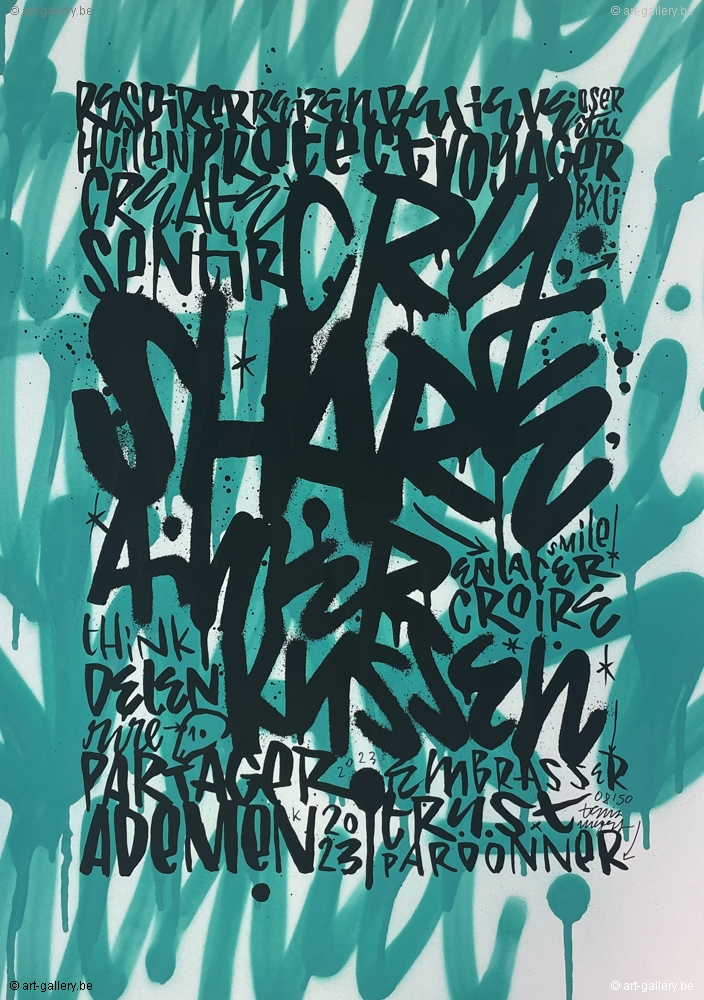 © art-gallery.be © art-gallery.be
RESPIRER REIZEN BELIEVE OSER
HUILEN PROTECT VOYAGER être
CREATE CRY BXL
SENTIR
SHARE
smile!
AIMER ENLACER
CROIRE
THINK
DELEN KUSSEN
rire
PARTAGER 2023 EMBRASSER
08/50
ADEMEN 2023 TRUST
PARDONNER
© art-gallery.be © art-gallery.be